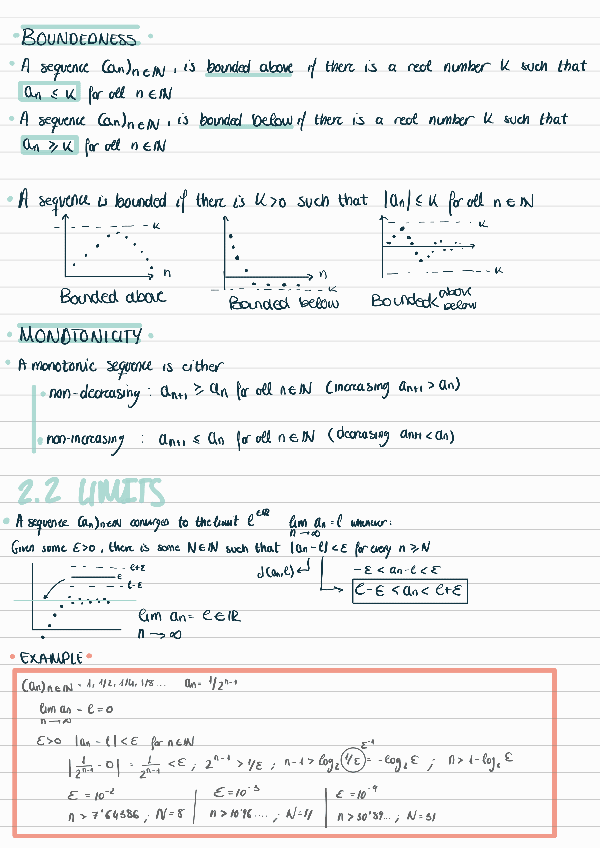 • BOUNDEDNESS •
• A sequence (an)n∈ℕ, is bounded above if there is a real number K such that
an ≤ K for all n ∈ ℕ
• A sequence (an)n∈ℕ, is bounded below if there is a real number K such that
an ≥ K for all n ∈ ℕ
• A sequence is bounded if there is K>0 such that |an| ≤ K for all n ∈ ℕ
K
n
Bounded above
n
K
Bounded below
K
K
Bounded above below
• MONOTONICITY •
• A monotonic sequence is either
• non-decreasing : an+1 ≥ an for all n∈ℕ (increasing an+1 > an)
• non-increasing : an+1 ≤ an for all n∈ℕ (decreasing an+1 < an)
2.2 LIMITS
• A sequence (an)n∈ℕ converges to the limit ℓ ∈ℝ lim an = ℓ whenever:
n→∞
Given some ε>0, there is some N∈ℕ such that |an-ℓ| < ε for every n ≥ N
d(an,ℓ) -ε < an-ℓ < ε
ℓ-ε < an < ℓ+ε
ℓ+ε
ε
ℓ-ε
lim an = ℓ ∈ ℝ
n→∞
• EXAMPLE •
(an)n∈ℕ = 1, 1/2, 1/4, 1/8... an = 1/2^n-1
lim an = ℓ = 0
n→∞
ε>0 |an - ℓ| < ε for n∈ℕ
|1/2^n-1 - 0| = 1/2^n-1 < ε ; 2^n-1 > 1/ε ; n-1 > log2 (1/ε) = -log2 ε ; n > 1-log2 ε
ε^-1
ε = 10^-2 | ε = 10^-3 | ε = 10^-9
n > 7'64386 ; N = 8 | n > 10'96.... ; N = 11 | n > 30'89... ; N = 31